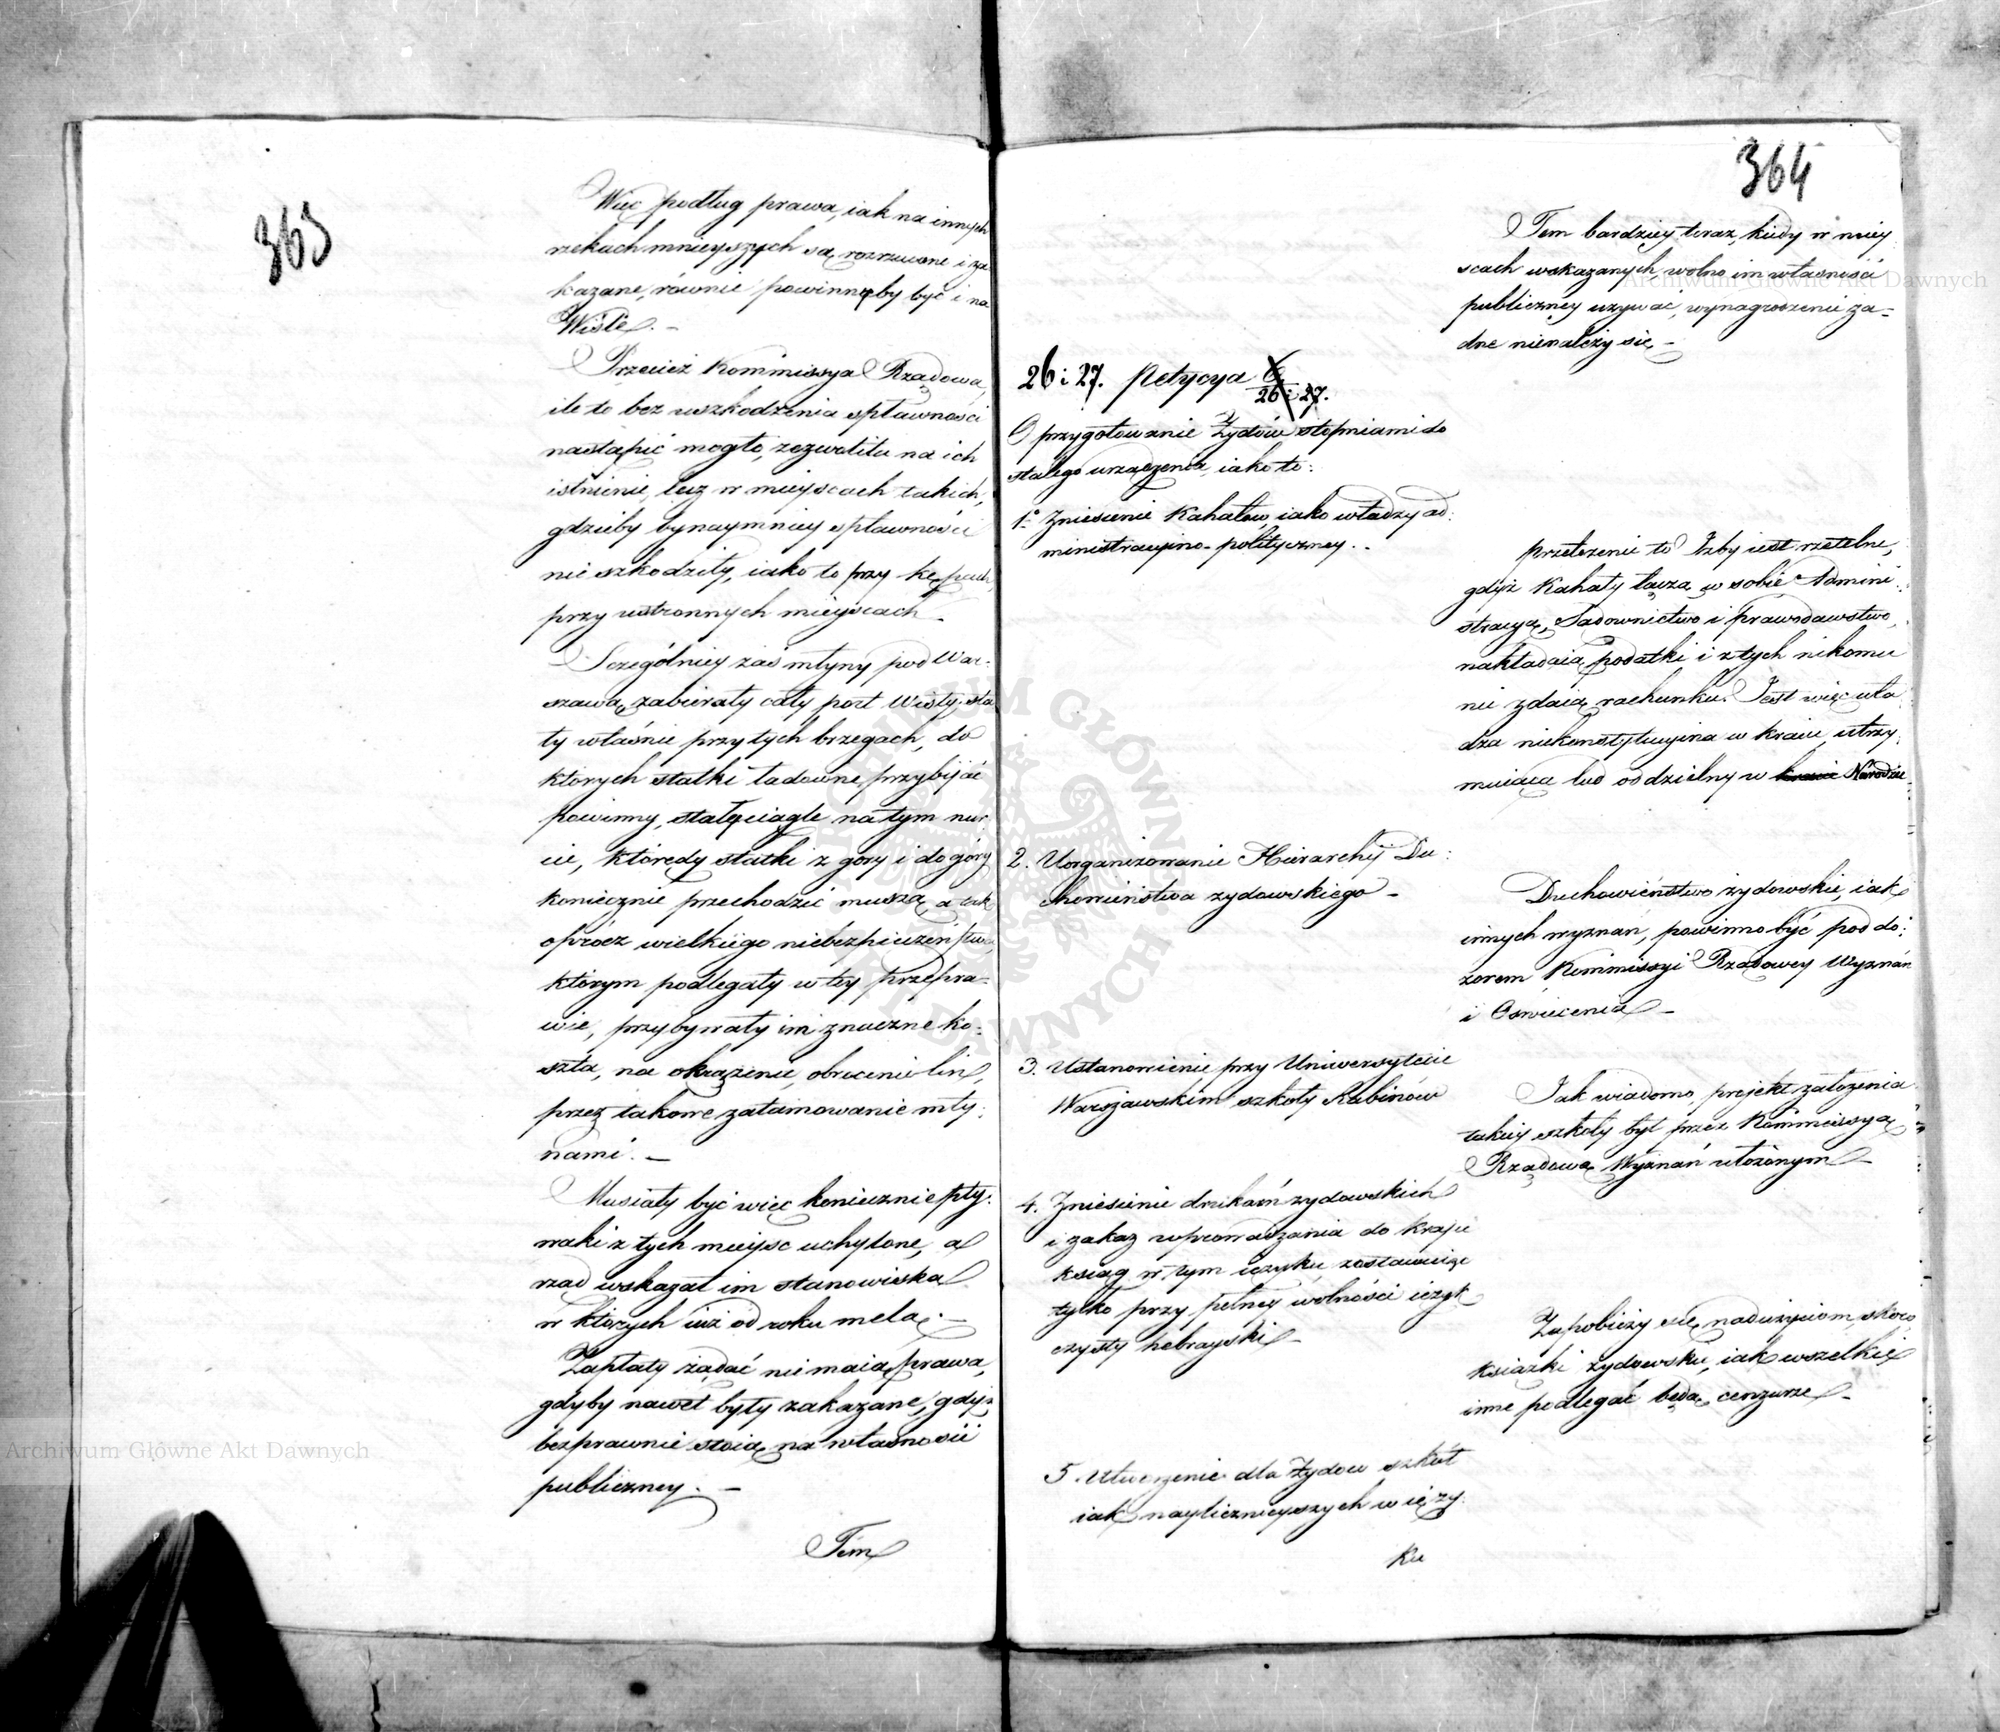 363
Więc podług prawa, iak na innych
rzekach mnieyszych są rozrzucone i za
kazane, równie powinnyby być i na
Wiśle. –
Przecież Kommissya Rządowa,
ile to bez uszkodzenia spławności
nastąpić mogło, zezwoliła na ich
istnienie, lecz w mieyscach takich,
gdzieby bynaymniey spławności
nie szkodziły, iako to przy kępach,
przy ustronnych mieyscach –
Szczególniey zaś młyny pod War-
szawą, zabierały cały port Wisły, sta
ły właśnie przy tych brzegach, do
których statki ładowne przybijać
powinny, stały ciągle na tym nur
cie, którędy statki z góry i do góry
koniecznie przechodzić muszą, a tak
oprócz wielkiego niebezpieczeństwa,
którym podlegały w tey przepra-
wie, przybywały im znaczne ko-
szta, na okrążenie, obrócenie lin,
przez takowe zatamowanie mły-
nami. –
Musiały być więc koniecznie pły-
waki z tych mieysc uchylone, a
rząd wskazał im stanowiska
w których iuż od roku melą. –
Zapłaty żądać nie maią prawa,
gdyby nawet były zakazane, gdyż
bezprawnie stoią na własności
publiczney. –
Tém
364
Tém bardziey teraz, kiedy w miey
scach wskazanych, wolno im własności
publiczney używać, wynagrodzenie ża-
dne nienależy się –
26 i 27. Petycya 26 i 27.
O przygotowanie Żydów stopniami do
stałego urządzenia, iako to:
1° Zniesienie Kahałów, iako władzy ad-
ministracyino-polityczney. –
Przełożenie to Izby iest rzetelne,
gdyż Kahały łączą w sobie Admini
stracyą, Sądownictwo i prawodawstwo,
nakładaią podatki i z tych nikomu
nie zdaią rachunku. Jest więc wła
dza niekonstytucyina w kraiu, utrzy
muiąca lud oddzielny w kraiu Narodzie
2. Uorganizowanie Hierarchij Du-
chowieństwa żydowskiego –
Duchowieństwo żydowskie, iak
innych wyznań, powinno być pod do-
zorem Kommissyi Rządowey Wyznań
i Oświecenia –
3. Ustanowienie przy Uniwersytecie
Warszawskim szkoły Rabinów
Jak wiadomo, projekt założenia
takiey szkoły był przez Kommissyą
Rządową Wyznań ułożonym –
4. Zniesienie drukarń żydowskich
i zakaz wprowadzania do kraju
ksiąg w tym ięzyku, zostawuiąc
tylko przy pełney wolności ięzyk
czysty hebrayski –
Zapobieży się nadużyciom, skoro
książki żydowskie, iak wszelkie
inne podlegać będą cenzurze –
5. Utworzenie dla Żydów szkół
iak nayliczniejszych w ięzy-
ku
Archiwum Główne Akt Dawnych
Archiwum Główne Akt Dawnych
ARCHIWUM GŁÓWNE AKT DAWNYCH